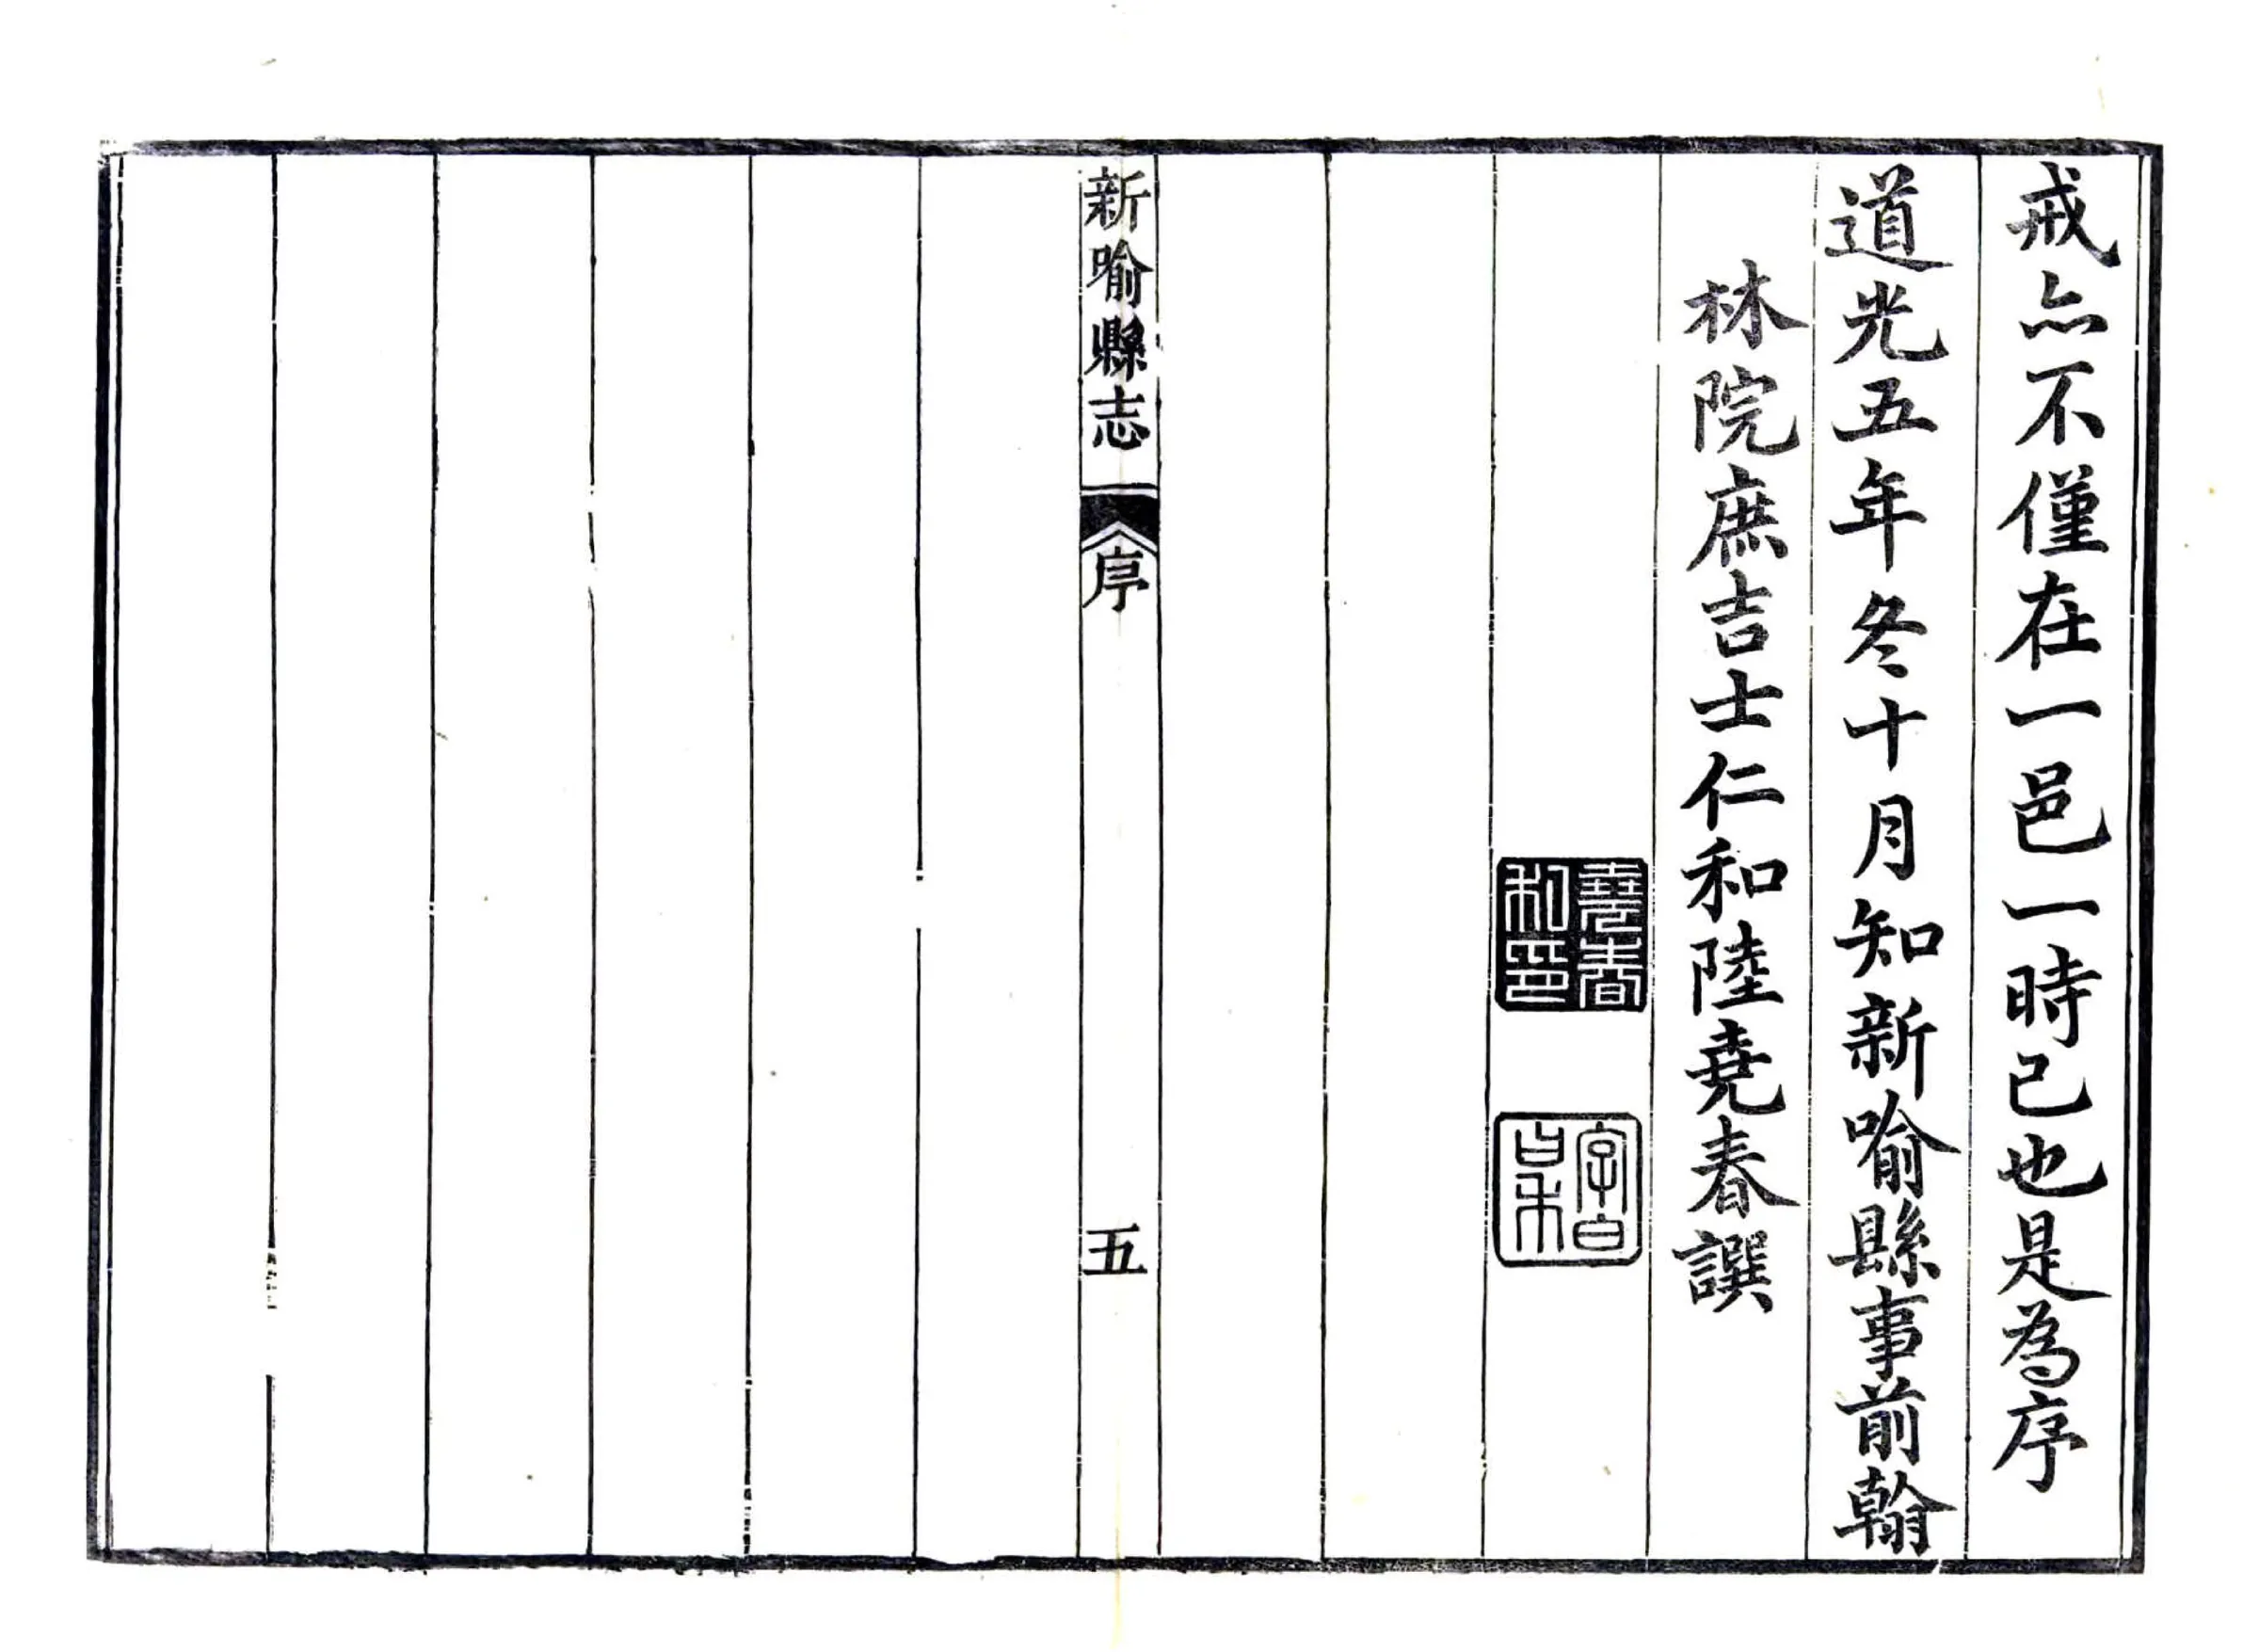 戒亦不僅在一邑一時已也是為序
道光五年冬十月知新喻縣事前翰
林院庶吉士仁和陸堯春譔
堯春私印
新喻縣志
序
五